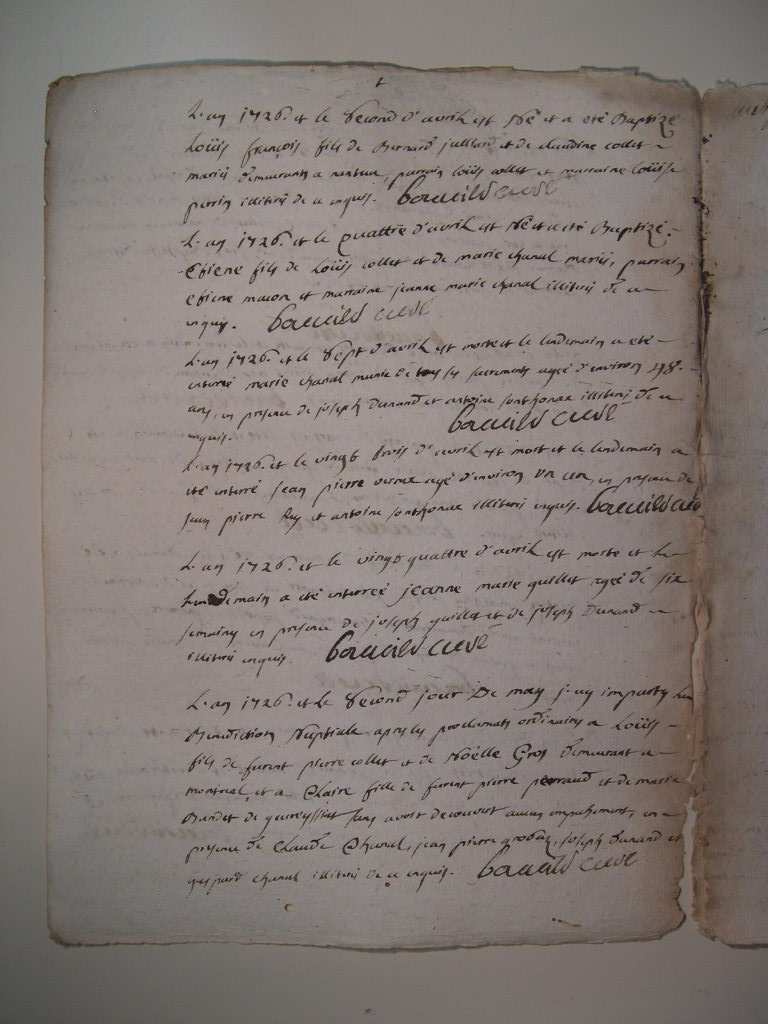 L'an 1726. et le second d'avril est Né et a eté Baptizé
Loüis françois fils de Bernard Julliard et de claudine collet
mariés demeurants a nantua, parrain loüis collet et marraine loüise
perrin illiterés de ce enquis.
L'an 1726. et le quattre d'avril est Né et a eté Baptizé
Etiene fils de Loüis collet et de marie chanal mariés, parrain
etiene macon et marraine jeanne marie chanal illiterés de ce
enquis. curé
L'an 1726. et le sept d'avril est morte et le lendemain a eté
enterrée marie chanal munie de tous les sacrements agée d'environ
ans, en presence de joseph Durand et antoine illiterés de ce
enquis. curé
L'an 1726. et le vingt trois d'avril est mort et le lendemain a
eté enterré jean pierre agé d'environ un an, en presence de
jean pierre Rey et antoine illiterés enquis. curé
L'an 1726. et le vingt quattre d'avril est morte et le
lendemain a eté enterrée jeanne marie guillet agée de six
semaines en presence de joseph guillet et de joseph Durand
illiterés enquis. curé
L'an 1726. et le second jour De may j'ay imparty la
Benediction Nuptiale apres les proclamats ordinaires a Loüis
fils de furent pierre collet et de Noëlle Gros demeurant a
montreal, et a Claire fille de furent pierre perraud et de marie
de sans avoir decouvert aucun empechement, en
presence de Claude Chanal, jean pierre joseph Durand et
gaspard chanal illiterés de ce enquis. curé